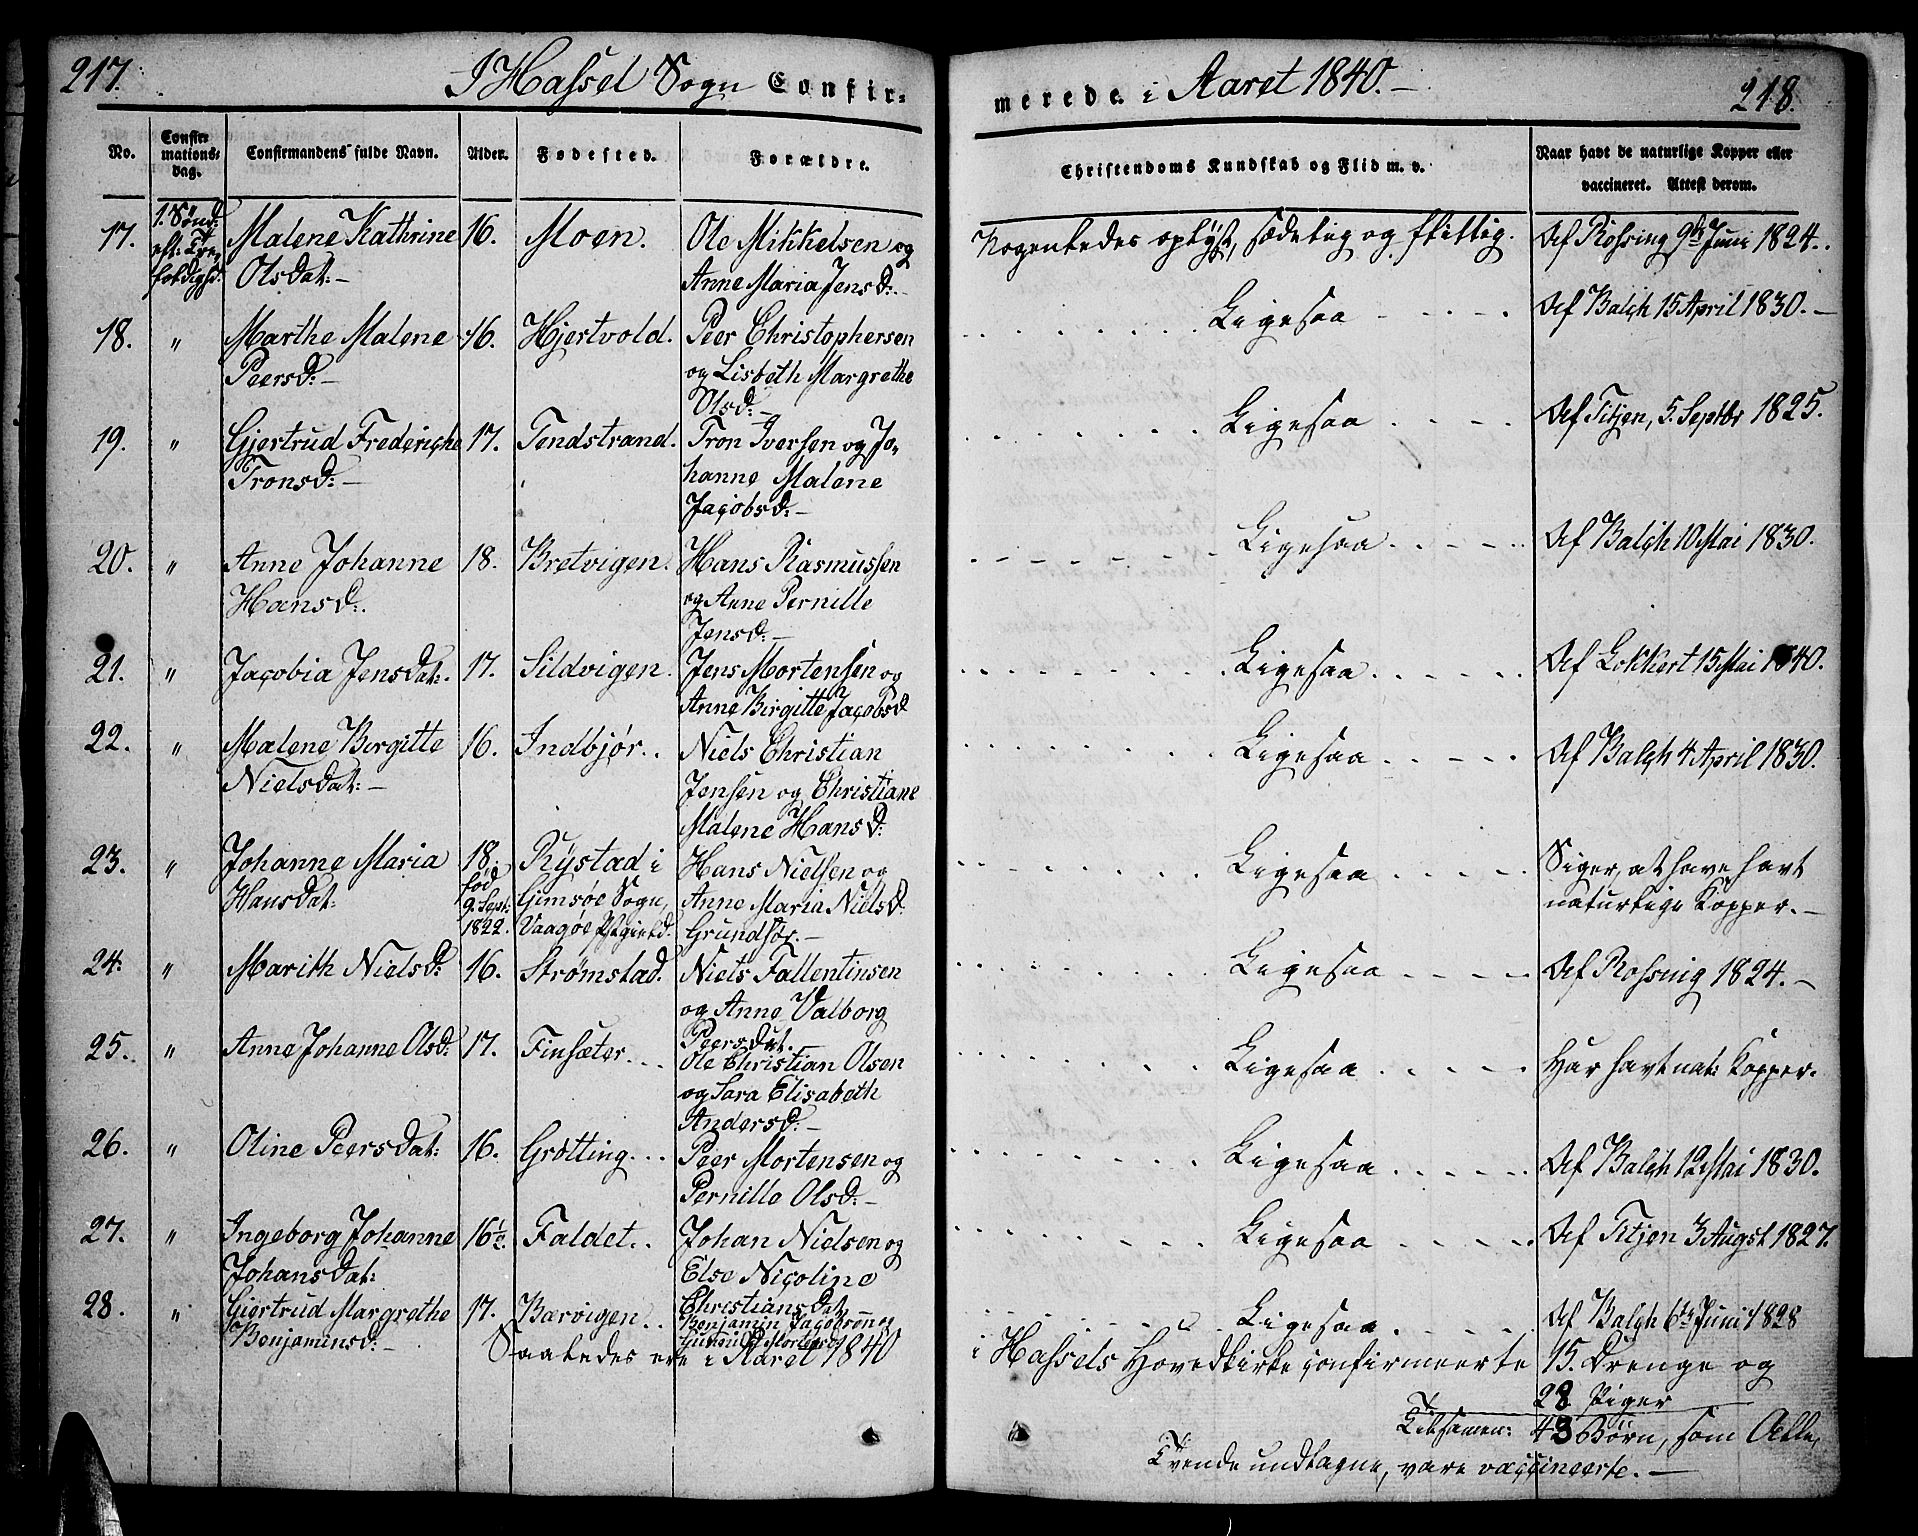 217.
I Hassel Sogn Confir-
merede i Aaret 1840.-
218.
No.
Confir-
mations-
dag.
Confirmandens fulde Navn.
Alder.
Fødested.
Forældre.
Christendoms Kundskab og Flid m. v.
Naar havt de naturlige Kopper eller
vaccineret. Attest derom.
17. 1. Sønd: Malene Kathrine 16. Moen. Ole Mikkelsen og Nogenledes oplyst, sædelig og flittig. Af Rossing 9de Juni 1824.
eft: Tre- Olsdat:- Anne Maria Jensd:-
foldighd:
18. " Marthe Malene 16. Hjertvold. Peer Christophersen Ligesaa Af Balch 15 April 1830.-
Peersd:- og Lisbeth Margrethe
Olsd:-
19. " Gjertrud Frederiche 17. Tendstrand. Tron Iversen og Jo- Ligesaa Af Titjen, 5. Septbr 1825.
Tronsd:- hanne Malene
Jacobsd:-
20. " Anne Johanne 18. Bretvigen. Hans Rasmussen Ligesaa Af Balch 10 Mai 1830.
Hansd:. og Anne Pernille
Jensd:-
21. " Jacobia Jensdat:. 17. Sildvigen. Jens Mortensen og Ligesaa Af Lokkert 15 Mai 1840.
Anne Birgitte Jacobsd
22. " Malene Birgitte 16. Indbjør. Niels Christian Ligesaa Af Balch 4 April 1830.
Nielsdat:- Jensen og Christiane
Malene Hansd:
23. " Johanne Maria 18. Rystad i Hans Nielsen og Ligesaa Siger, at have havt
Hansdat: fød Gimsøe Sogn, Anne Maria Nielsd: naturlige Kopper.-
9. Sept: Vaagøe Pgield. Grundfør.-
1822.
24. " Marith Nielsd: 16. Strømstad. Niels Fallentinsen Ligesaa Af Rossing 1824.-
og Anne Valborg
Peersdat.
25. " Anne Johanne Olsd: 17. Finsæter. Ole Christian Olsen Ligesaa Har havt nat: Kopper.
og Sara Elisabeth
Andersd:-
26. " Oline Peersdat: 16. Grøtting. Peer Mortensen og Ligesaa Af Balch 12 Mai 1830.
Pernille Olsd:-
27. " Ingeborg Johanne 16½. Faldet. Johan Nielsen og Ligesaa Af Titjen 3 Augst 1827.
Johansdat: Else Nicoline
Christiansdat
28. " Giertrud Margrethe 17. Bærvigen. Benjamin Jacobsen og Ligesaa Af Balch 6te Juni 1828
Benjaminsd:-
Saaledes ere i Aaret 1840 i Hassels Hovedkirke confirmeerte 15. Drenge og
28 Piger
Tilsamen: 43 Børn, som Alle,
Tvende undtagne, vare vaccineerte.-